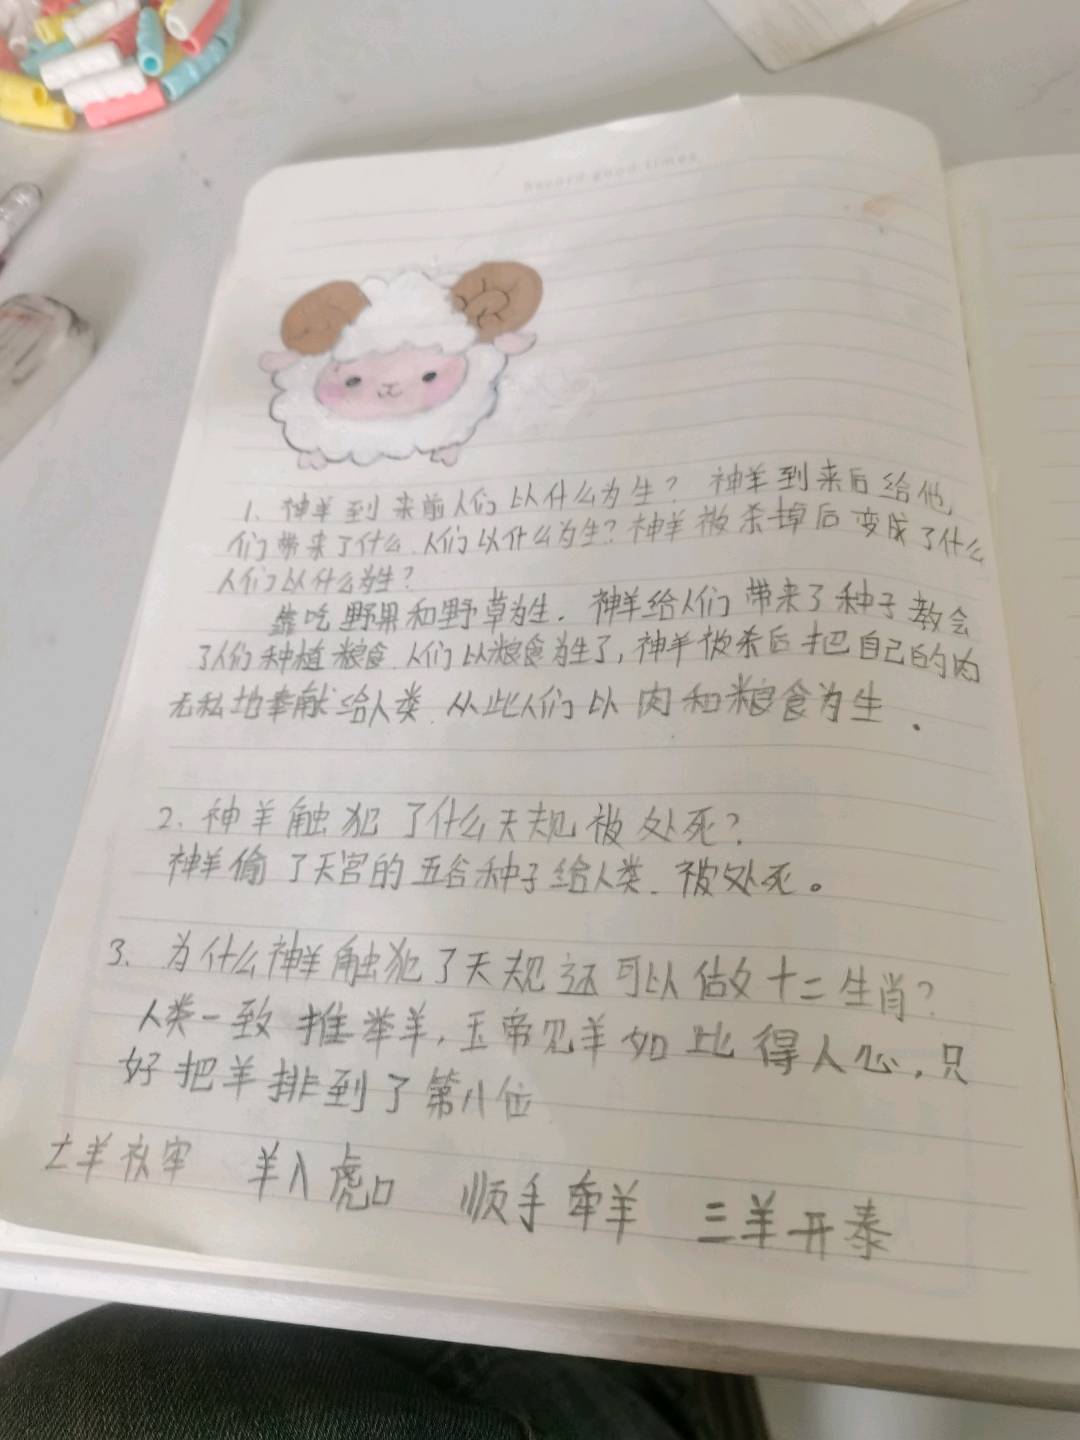 Record good times
1. 神羊到来前人们以什么为生？神羊到来后给他
们带来了什么.人们以什么为生?神羊被杀掉后变成了什么
人们以什么为生？
靠吃野果和野草为生.神羊给人们带来了种子教会
了人们种植粮食.人们以粮食为生了,神羊被杀后把自己的肉
无私地奉献给人类.从此人们以肉和粮食为生.
2.神羊触犯了什么天规被处死?
神羊偷了天宫的五谷种子给人类.被处死。
3.为什么神羊触犯了天规还可以做十二生肖?
人类一致推举羊,玉帝见羊如此得人心,只
好把羊排到了第八位
亡羊补牢 羊入虎口 顺手牵羊 三羊开泰